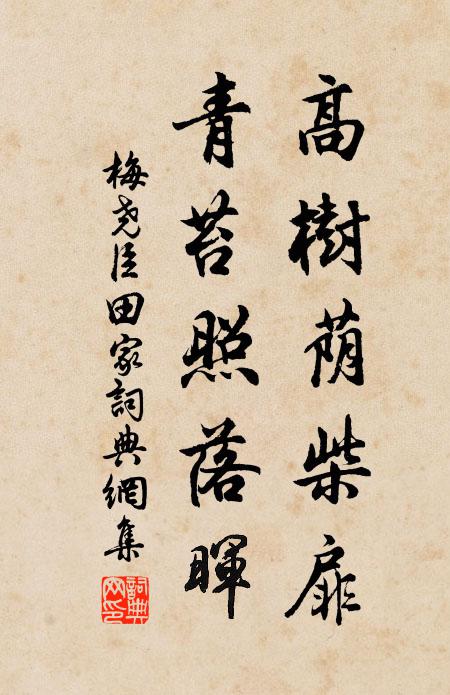 高樹蔭柴扉
青苔照落暉
梅堯臣田家詞典網集
詞典网印